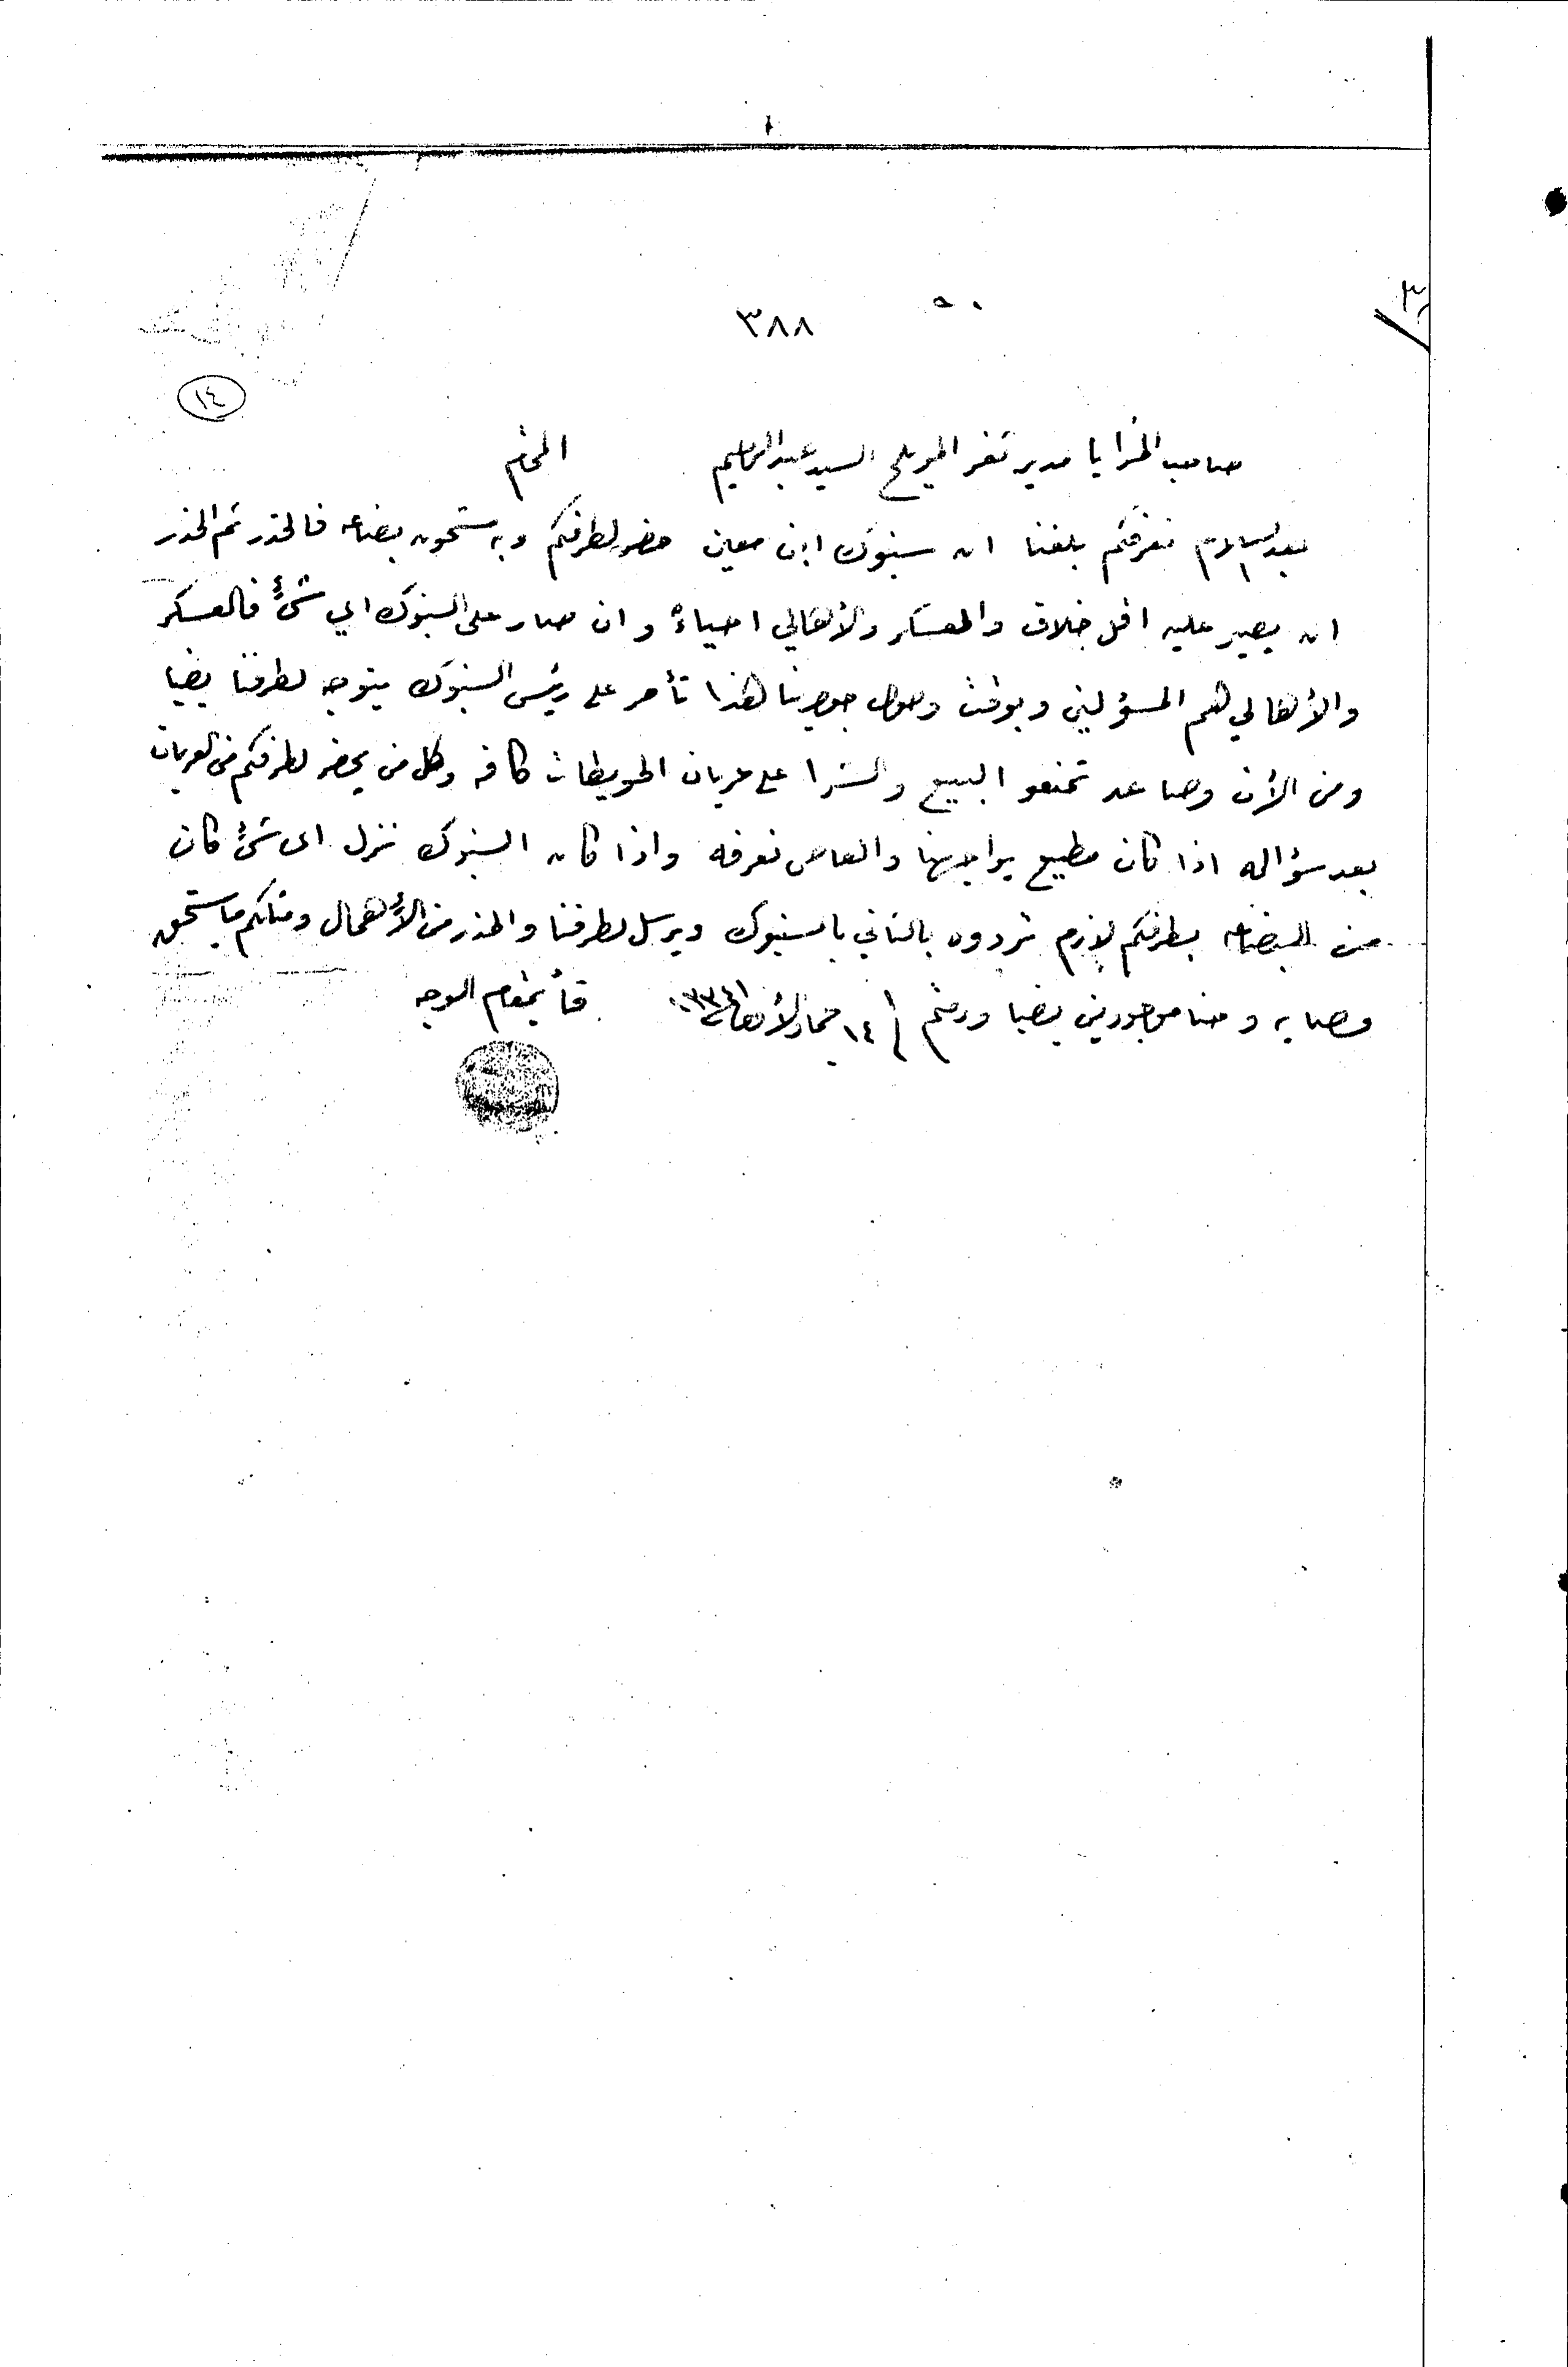 ٣٨٨
١٤
صاحب المزايا مدير ثغر المويلح السيد عبد الحليم المحترم
بعد السلام نعرفكم بلغنا ان سنبوك ابن معين حضر لطرفكم وبه مشحون بضاعه فالحذر ثم الحذر
ان يصير عليه اقل خلاف والعسكر والأهالي احياءً وان صار على السنبوك اي شئٍ فالعسكر
والأهالي هم المسؤلين وبوقت وصول جوابنا هذا تأمر على رئيس السنبوك يتوجه لطرفنا بضبا
ومن الأن وصاعد تمنعو البيع والشرا على عربان الحويطات كافه وكل من يحضر لطرفكم من العربان
بعد سؤاله اذا كان مطيع يواجهنا والعاص نعرفه واذا كان السنبوك نزل اى شئٍ كان
من البضاعه بطرفكم لازم تردوه بالثاني بالسنبوك ويرسل لطرفنا والحذر من الأهمال ومثلكم ما يستحق
وصايه وحنا موجودين بضبا ودمتم ١٤ جماد ١٣٤١ قائمقام الوجه